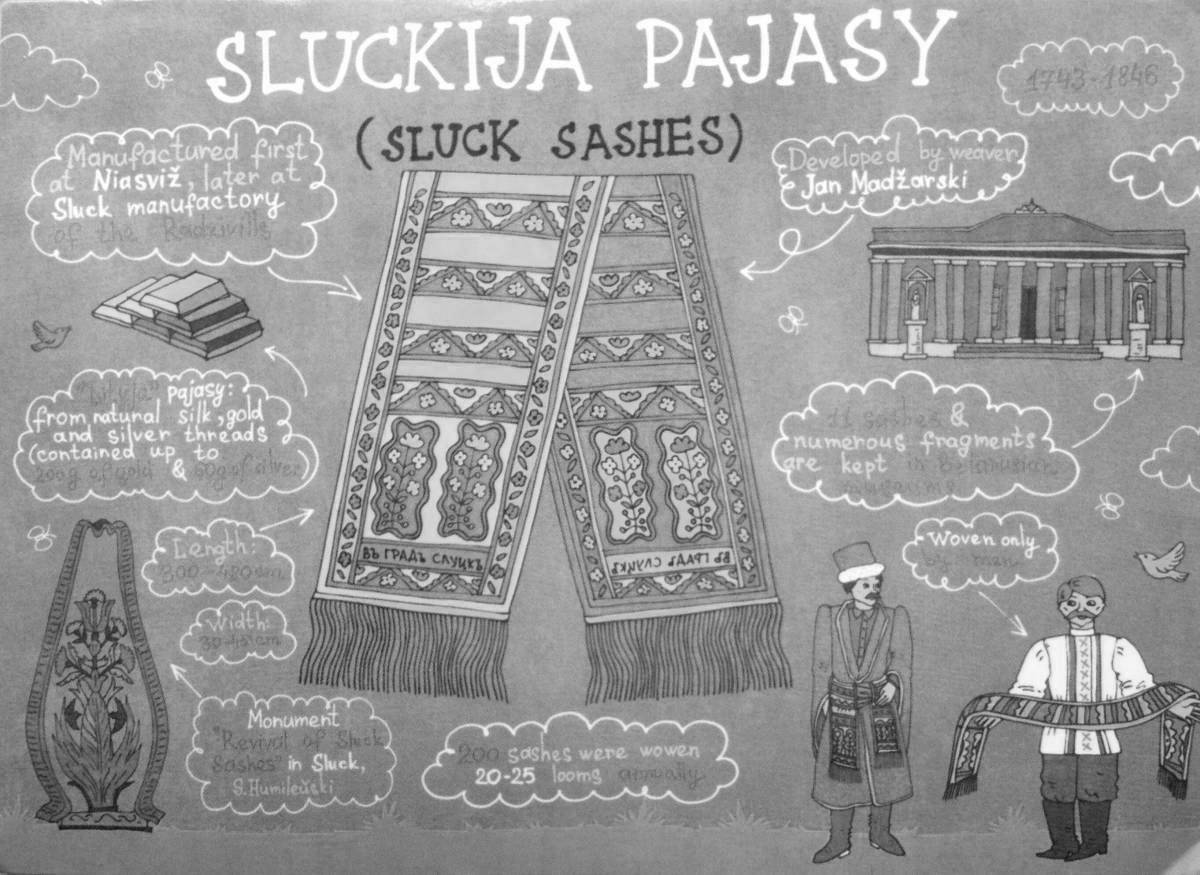 SLUCKIJA PAJASY
(SLUCK SASHES)
1743-1846
Manufactured first
at Niasviž, later at
Sluck manufactory
of the Radzivills
Developed by weaver
Jan Madžarski
pajasy:
from natural silk, gold
and silver threads
(contained up to
200g of gold & 60g of silver
11 sashes &
numerous fragments
are kept in Belarusian
museums
Length:
300-480 cm
Width:
30-45 cm
Woven only
by men
ВЪ ГРАДЪ СЛУЦКЪ
ВЪ ГРАДЪ СЛУЦКЪ
Monument
"Revival of Sluck
Sashes" in Sluck,
S.Humileŭski
200 sashes were wowen
20-25 looms annually